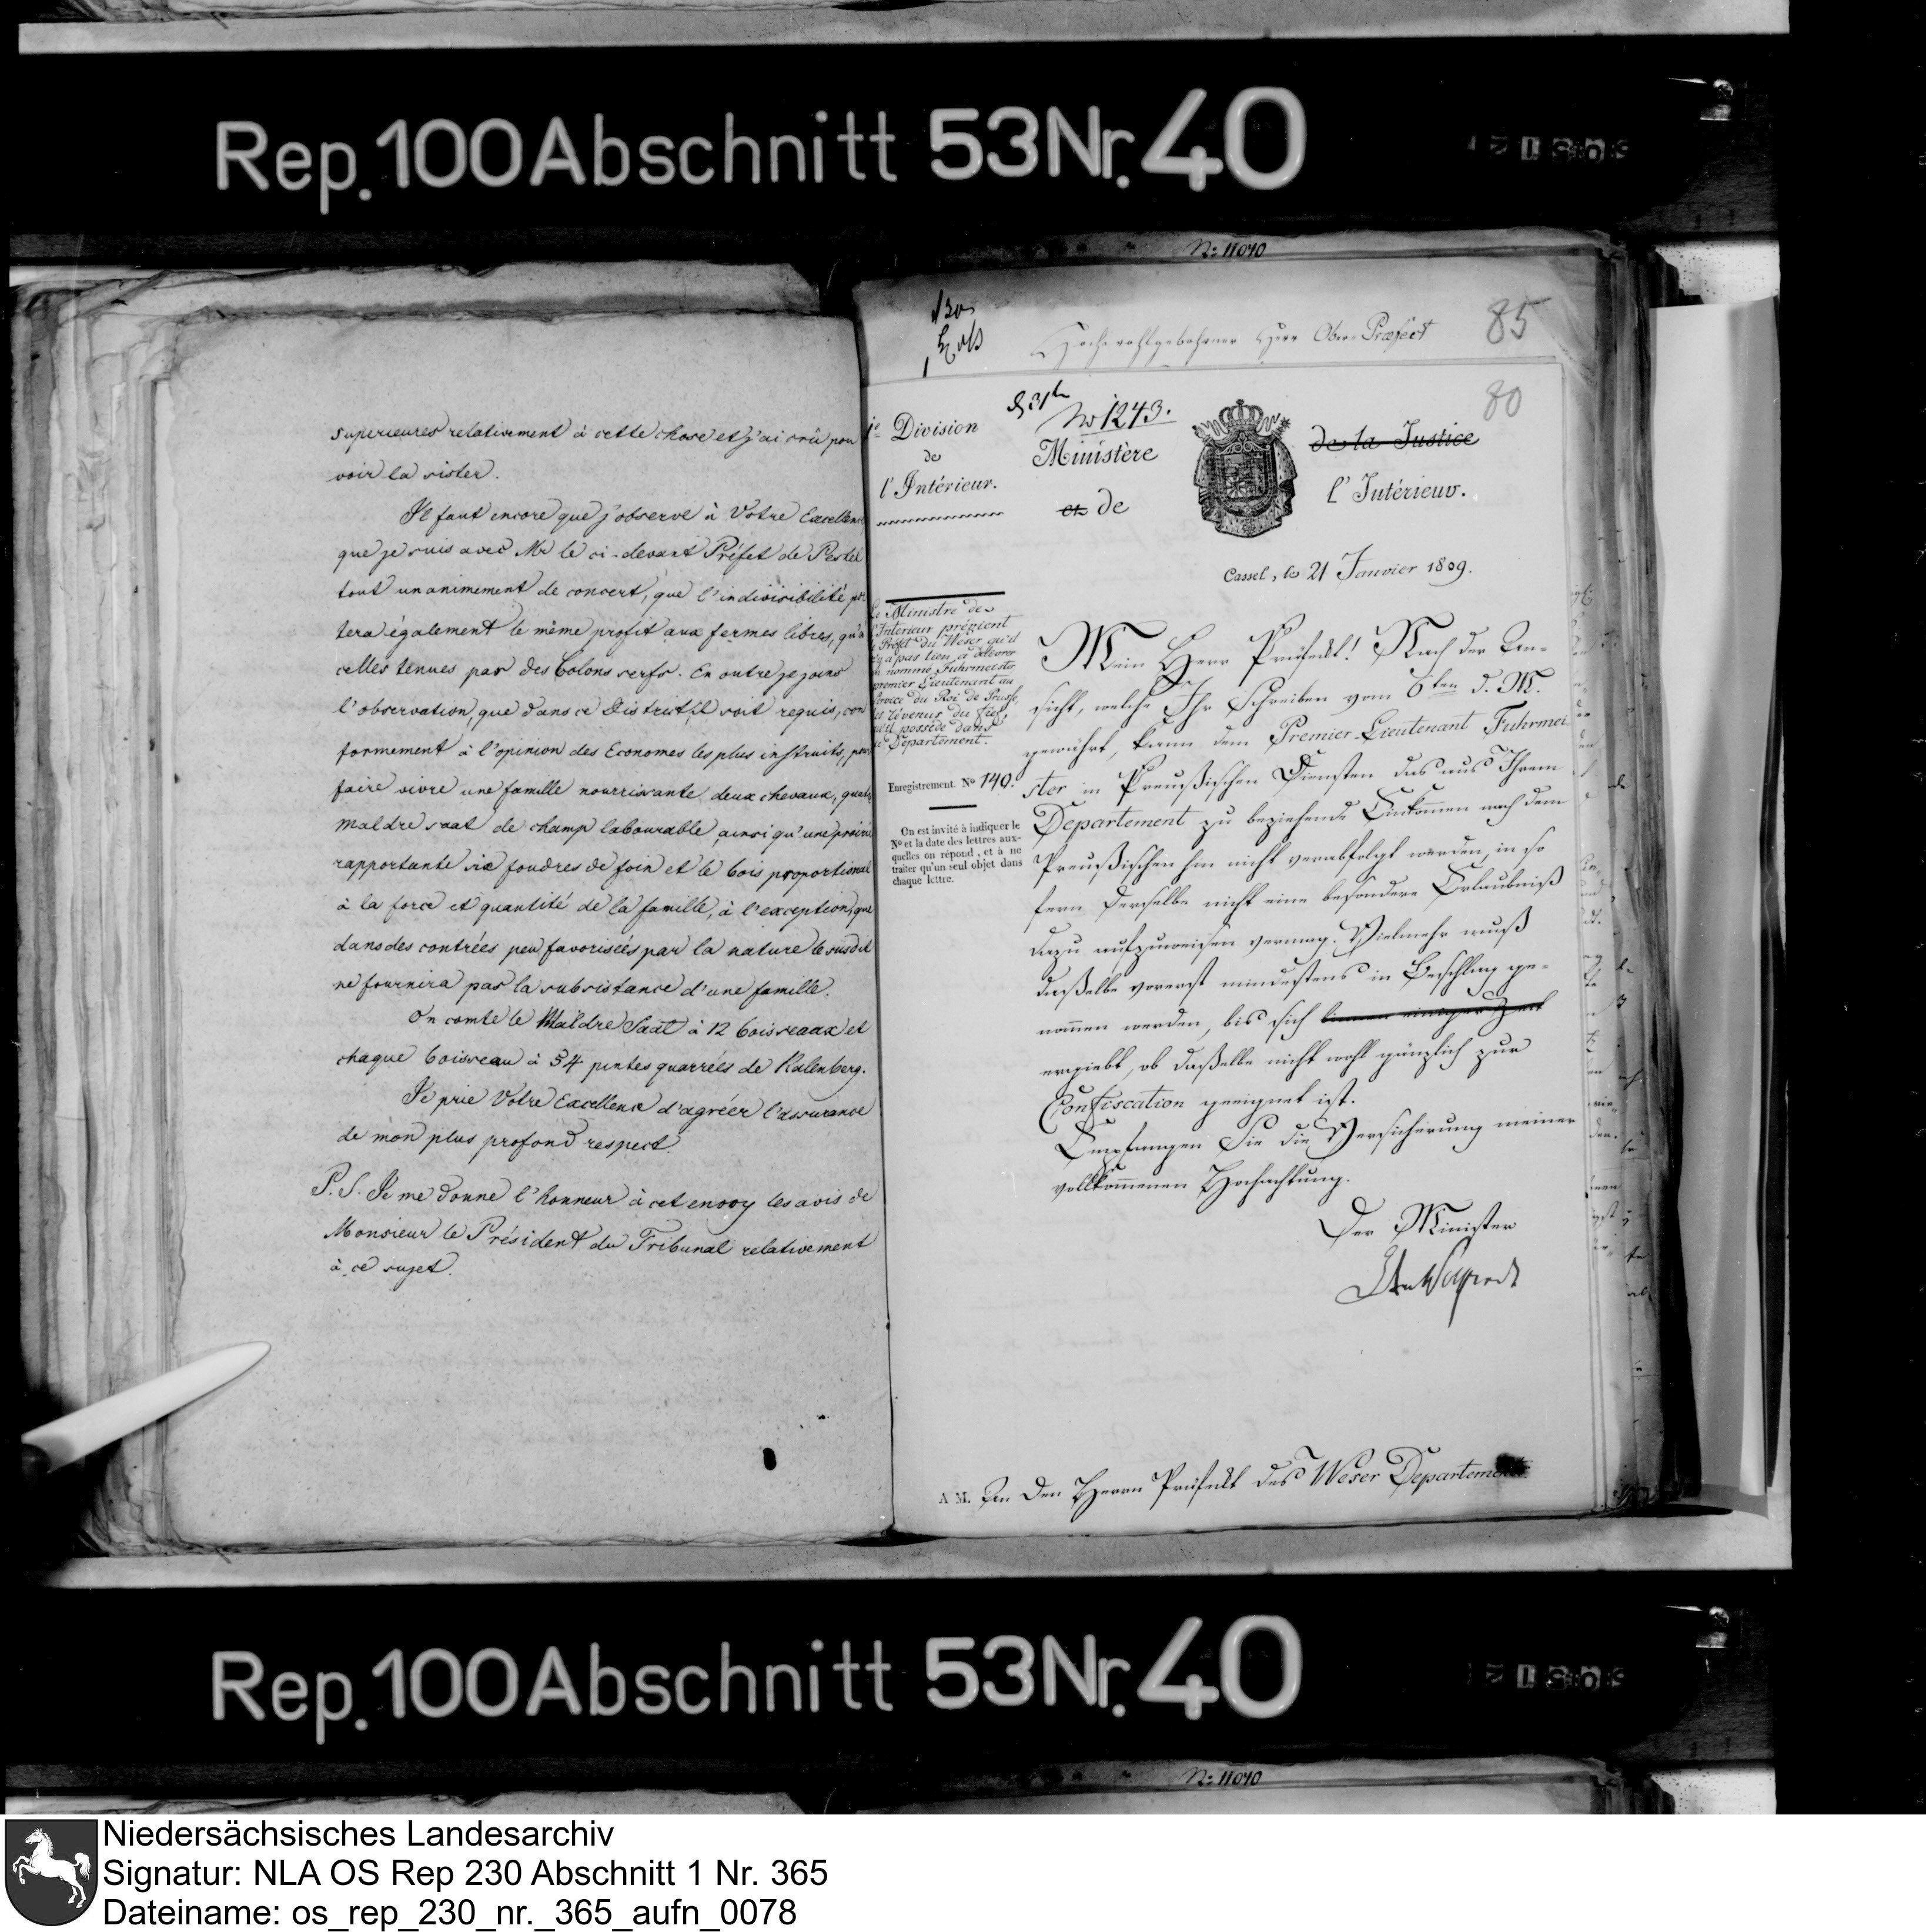 Rep. 100 Abschnitt 53 Nr. 40
superieures relativement à cette chose et j'ai crû pou
voir la sister.
Il faut encore que j'observe à Votre Excellence
que je suis avec Mr le ci-devant Préfet de Pestel
tout unanimement de concert, que l'indivisibilité por
tera également le même profit aux fermes libres, qu'à
celles tenues par des Colons serfs. En outre je joins
l'observation, que dans ce District il soit requis, con
formement à l'opinion des Economes les plus instruits, pour
faire vivre une famille nourrissante deux chevaux, quatre
Maldre saat de champ labourable, ainsi qu'une prairie
rapportante six foudres de foin et le bois proportional
à la force et quantité de la famille, à l'exception, que
dans des contrées peu favorisées par la nature le susdit
ne fournira pas la subsistance d'une famille.
On comte le Maldre Saat à 12 boisseaux et
chaque boisseau à 54 pintes quarrées de Kalenberg.
Je prie Votre Excellence d'agréer l'assurance
de mon plus profond respect.
P. S. Je me donne l'honneur à cet envoy les avis de
Monsieur le Président du Tribunal relativement
à ce sujet.
No 11040
Hochwohlgebohrner Herr Ober-Præfect
85
80
No 1243.
1e Division
de
l'Intérieur.
Ministère
et de
de la Justice
l'Intérieur.
Cassel, le 21 Janvier 1809.
Le Ministre de
l'Interieur prévient
le Préfet du Weser qu'il
n'y a pas lieu, à délivrer
au nommé Fuhrmeister
premier Lieutenant au
Service du Roi de Prusse,
les révenus du fief,
qu'il possède dans
ce Departement.
Enregistrement. No 140.
On est invité à indiquer le
No et la date des lettres aux-
quelles on répond, et à ne
traiter qu'un seul objet dans
chaque lettre.
Mein Herr Präfekt! Nach der An-
sicht, welche Ihr Schreiben vom 6ten d. M.
gewährt, kann dem Premier-Lieutenant Fuhrmei
ster in Preußischen Diensten das aus Ihrem
Departement zu beziehende Einkommen nach dem
Preußischen hin nicht verabfolgt werden, in so
fern derselbe nicht eine besondere Erlaubniß
dazu aufzuweisen vermag. Vielmehr muß
daßelbe vorerst mindestens in Beschlag ge-
nommen werden, bis sich binnen einiger Zeit
ergiebt, ob daßelbe nicht wohl gänzlich zur
Confiscation geeignet ist.
Empfangen Sie die Versicherung meiner
vollkommenen Hochachtung.
Der Minister
A M. An den Herrn Präfekt des Weser Departements
Rep. 100 Abschnitt 53 Nr. 40
No 11040
Niedersächsisches Landesarchiv
Signatur: NLA OS Rep 230 Abschnitt 1 Nr. 365
Dateiname: os_rep_230_nr._365_aufn_0078